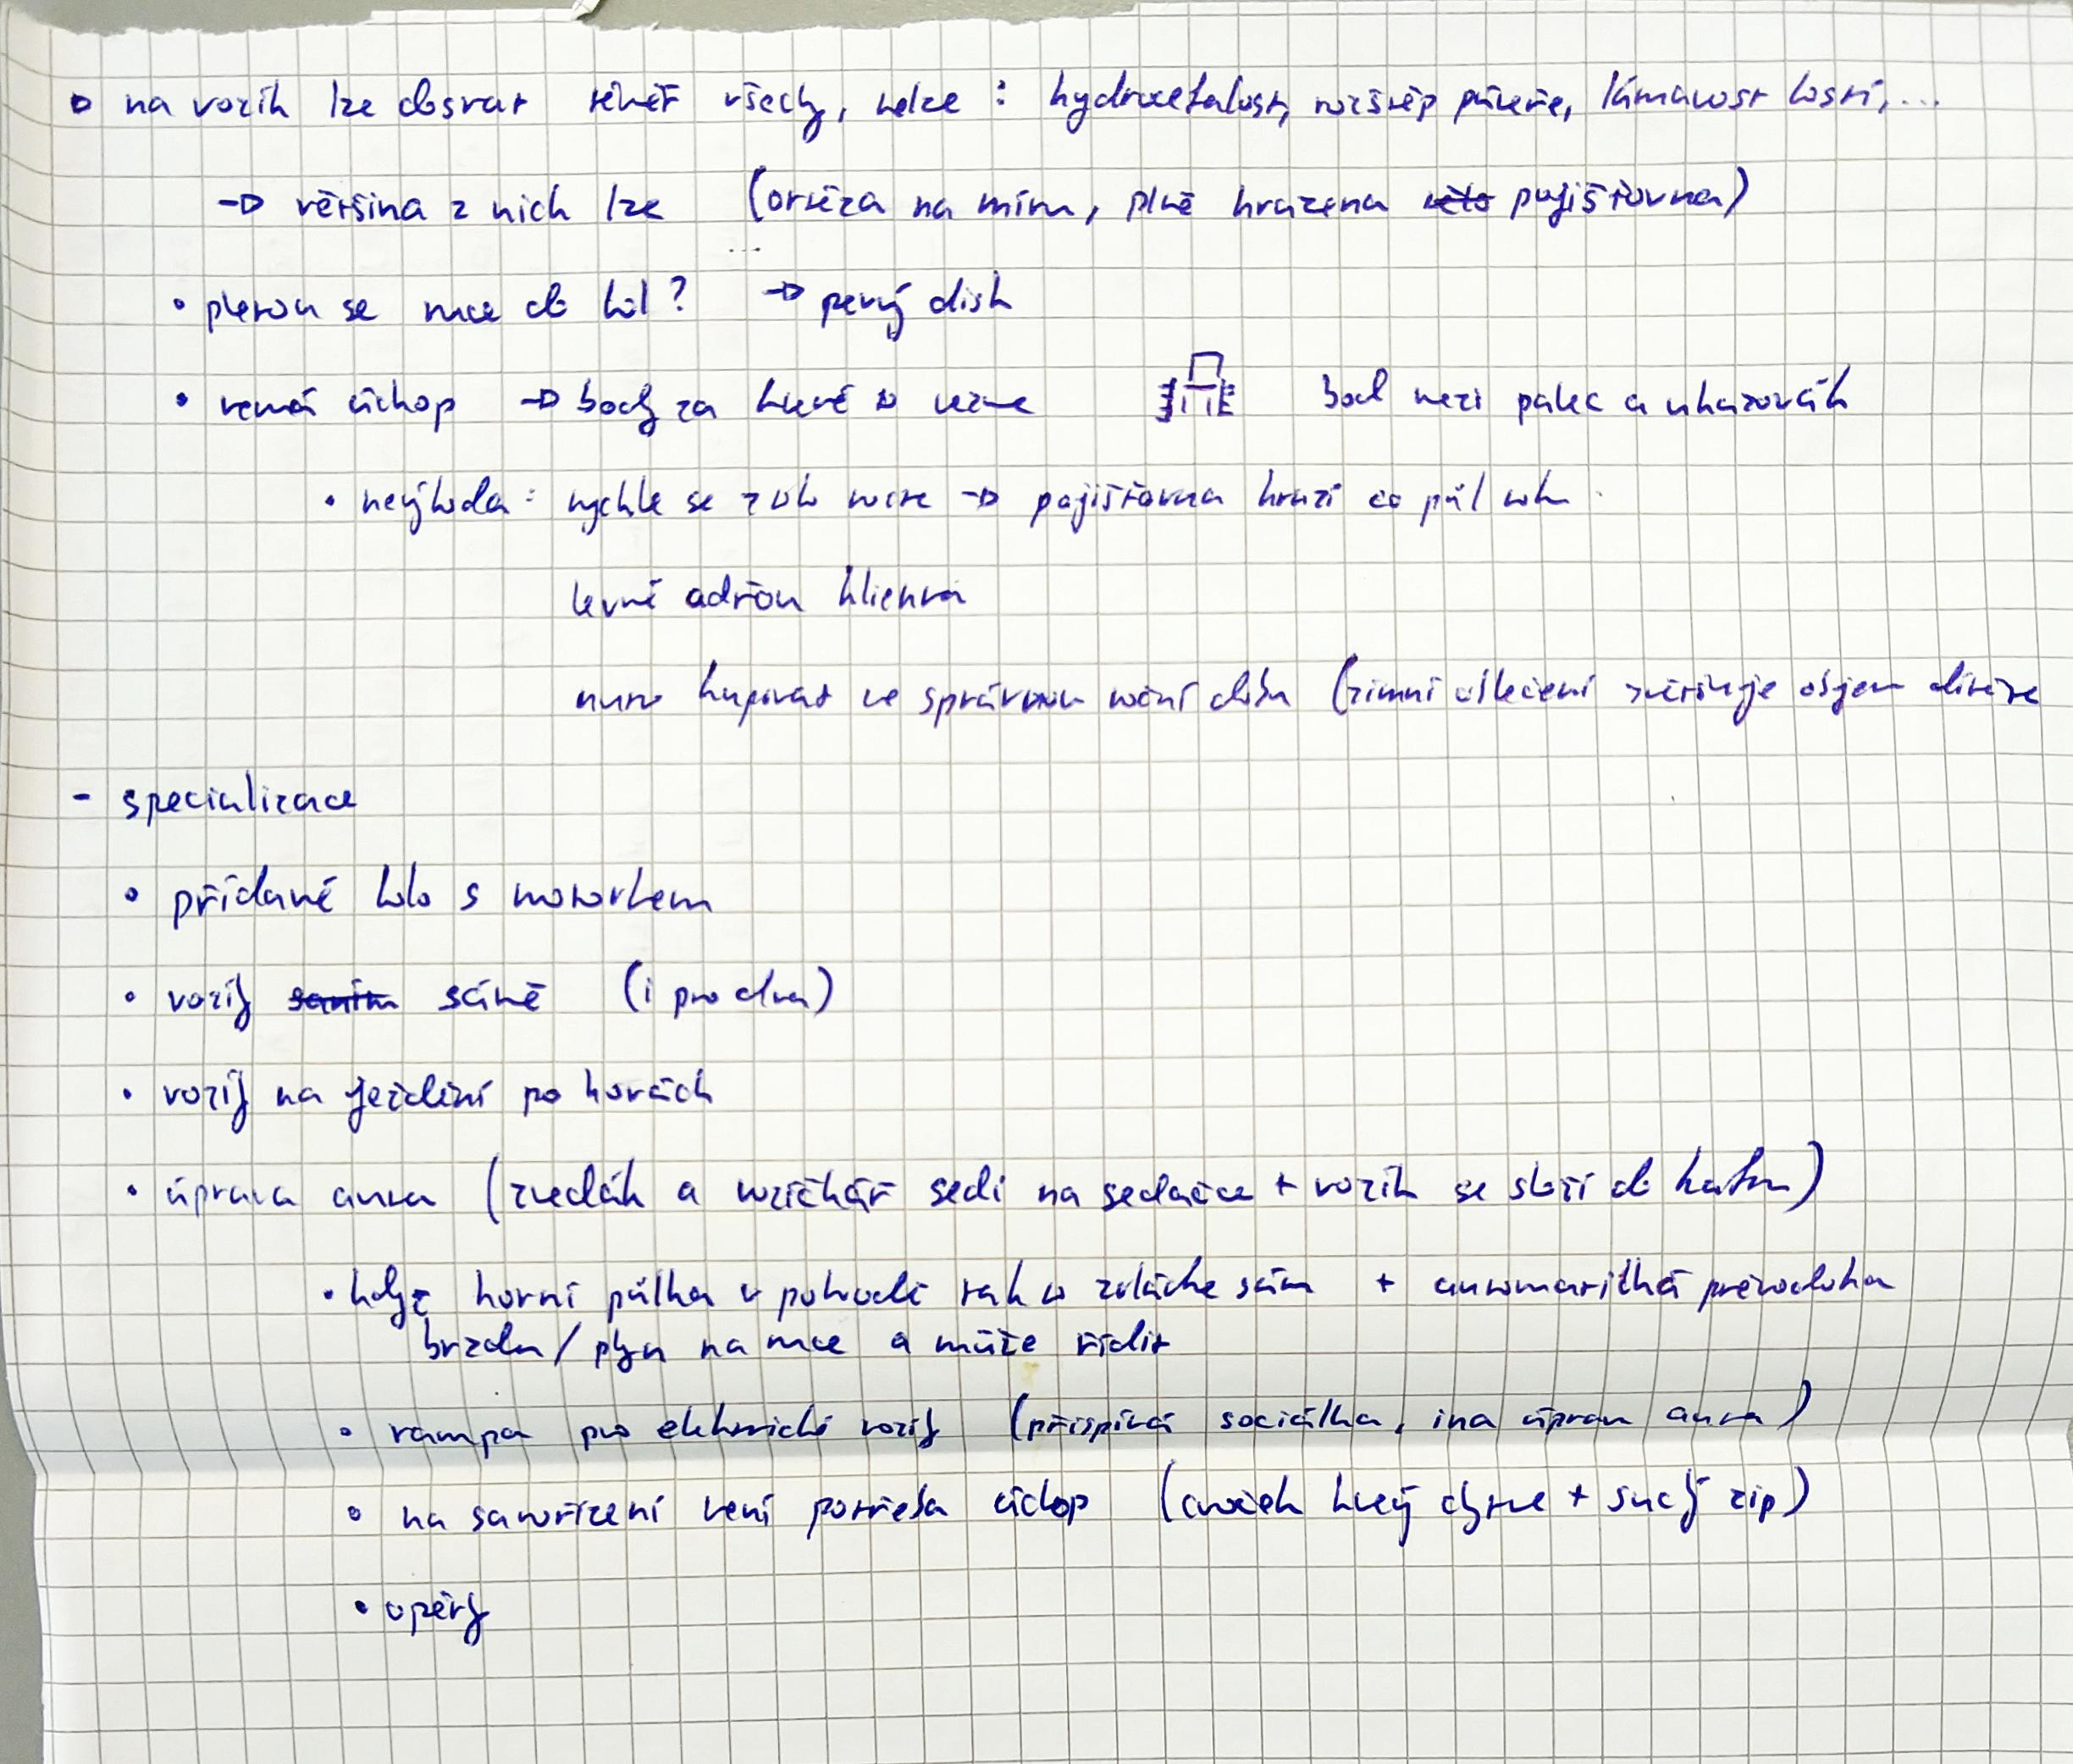 • na vozík lze dostat téměř všechy, nelze : hydrocefalost, rozštěp páteře, lámavost kostí,...
→ většina z nich lze (ortéza na míru, plně hrazena pojišťovna)
...
• pletou se ruce do kol? → pevný disk
• nemá úchop → body za které to vezme bod mezi palec a ukazovák
• nevýhoda : rychle se z toho roste → pojišťovna hradí co půl roku
levně odřou klienta
nutno kupovat ve správnou roční dobu (zimní oblečení zvětšuje objem
- specializace
• přídavné kolo s motorkem
• vozíky sáně (i pro dva)
• vozíky na ježdění po horách
• úprava auta (zvedák a vozíčkář sedí na sedačce + vozík se složí do kufru)
• když horní půlka v pohodě tak to zvládne sám + automatická převodovka
brzdu/plyn na ruce a může řídit
• rampa pro elektrické vozíky (přispívá sociálka, jiná úprava auta)
• na samořízení není potřeba úchop (cvoček který chytne + suchý zip)
• opěrky